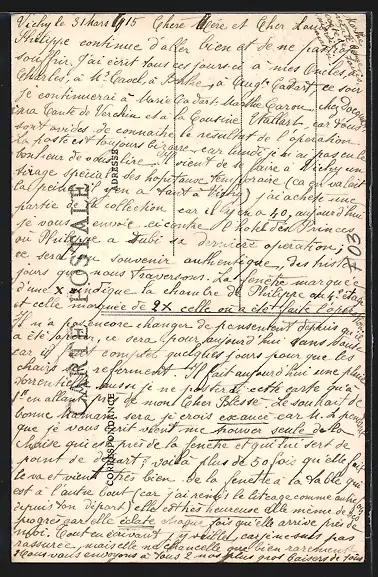 Vichy le 31 Mars 1915 Chère Mère et Cher Louis
Philippe continue d'aller bien et de ne pas
souffrir. J'ai écrit tous ces jours-ce à mes Oncles, à
Charles, à Mr Cavel, à Berthe, à Aug Cadart, ce soir
je continuerai à Marie Cadart, Marthe Caron, chez
ma Tante de Verchin et à la Cousine Thellart, car tous
sont avides de connaître le résultat de l'opération.
La poste est toujours bizarre, car lundi je n'ai pas eu le
bonheur de vous lire. Il vient de se faire à Vichy un
tirage spécial des hôpitaux temporaire (ca qui valait
la peine, il y en a tant à Vichy) j'ai acheté une
partie de la collection car il y en a 40, aujourd'hui
je vous envoie ci-contre l'hôtel des Princes
ou Philippe a subi sa dernière opération;
ce sera un souvenir authentique, des tristes
jours que nous traversons. La fenêtre marquée
d'une X indique la chambre de Philippe au 4e étage
et celle marquée de 2 X celle où a été faite l'opér
Il n'a pas encore changer de pansement depuis qu'il
a été opérer, ce sera pour aujourd'hui sans doute
car il faut compter quelques jours pour que les
chairs se referment. Il fait aujourd'hui une pluie
torentielle aussi je ne posterai cette carte qu'à
1h en allant près de mon Cher Blessé. Le souhait de
bonne Maman sera je crois exaucé car M. L pendant
que je vous écrit vient me trouver seule de la
chaise qui est près de la fenêtre et qui lui sert de
point de départ; voilà plus de 50 fois qu'elle fait
le va et vient très bien de la fenêtre à la table qui
est à l'autre bout (car j'ai remis le litcage comme autre
depuis ton départ) elle est très heureuse elle même de
progrès car elle éclate chaque fois qu'elle arrive près de
moi. Tout en écrivant j'y veille, car je ne suis pas
rassurée, mais elle ne chancelle que bien rarement.
Nous vous envoyons à tous 2 nos plus gros baisers de tous
CARTE POSTALE
CORRESPONDANCE
ADRESSE
703